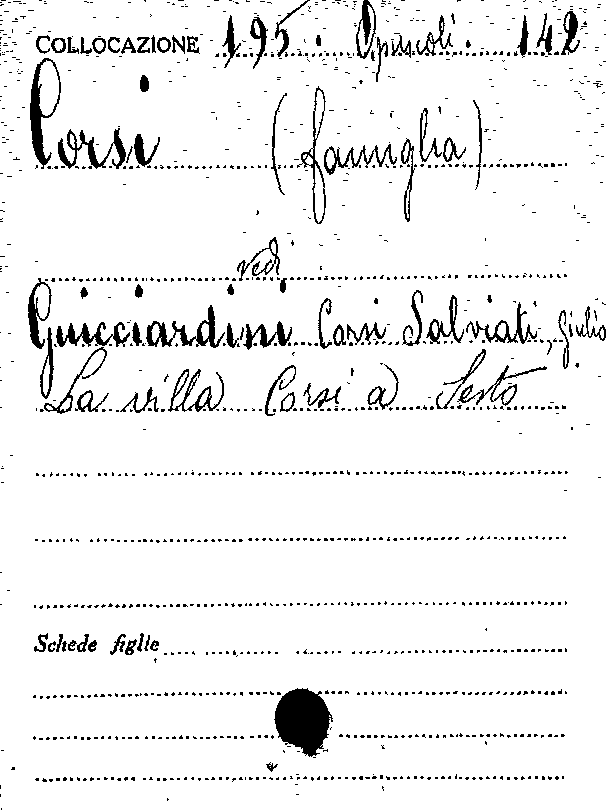 COLLOCAZIONE 195. Opuscoli. 142
Corsi (famiglia)
vedi
Guicciardini Corsi Salviati, Giulio
La villa Corsi a Sesto
Schede figlie